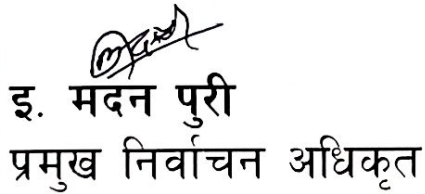 इ. मदन पुरी
प्रमुख निर्वाचन अधिकृत